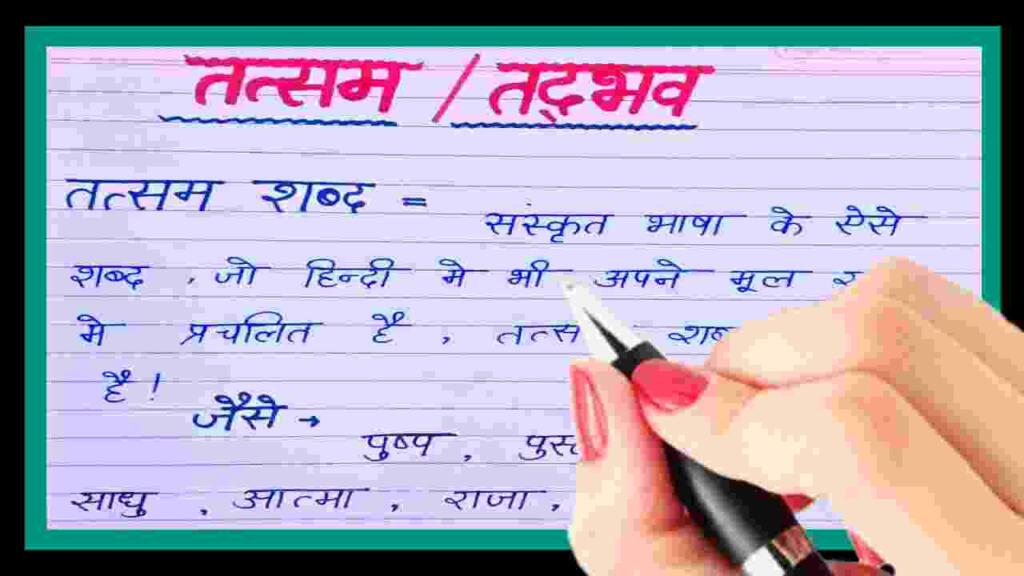 तत्सम / तद्भव
तत्सम शब्द =
संस्कृत भाषा के ऐसे
शब्द , जो हिन्दी मे भी अपने मूल
मे प्रचलित है ,
है !
जैसे →
पुष्प ,
साधु , आत्मा , राजा ,